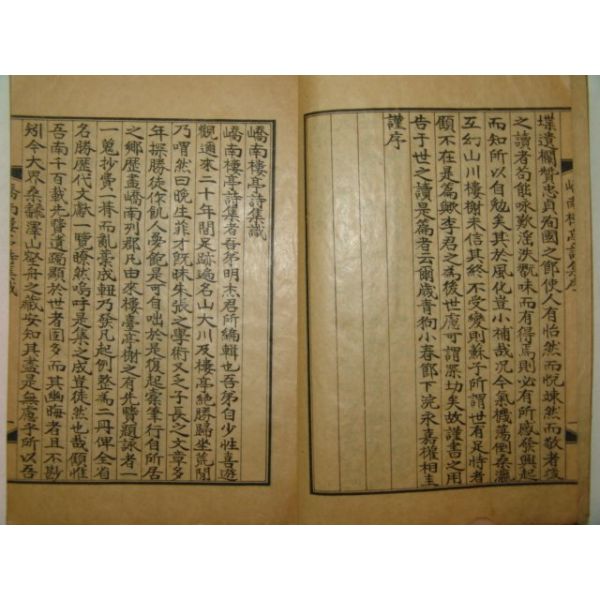 堞遺欄贊忠貞殉國之節使人有怡然而悅竦然而敬者後
之讀者苟能咏歎淫泆翫味而有得焉則必有所感發興起
而知所以自勉矣其於風化豈小補哉况今氣機蕩倒桑瀛
互幻山川樓榭未信其終不受變則蘇子所謂世有是恃者
顧不在是篇歟李君之爲後世慮可謂深切矣故謹書之用
告于世之讀是篇者云爾歲青狗小春節下浣永嘉權相圭
謹序
嶠南樓亭詩集序
嶠南樓亭詩集識
嶠南樓亭詩集者吾弟明杰君所編輯也吾弟自少性喜遊
觀適來二十年間足跡遍名山大川及樓亭絶勝歸坐荒閒
乃喟然曰晩生菲才旣昧朱張之學術又乏子長之文章多
年探勝徒作飢人夢飽是可自咄於是復起橐筆行自所居
之鄕歷盡嶠南列郡凡由來樓臺亭榭之有先賢題詠者一
一蒐抄費一暑而亂藁成軸乃發凡起例整爲二冊俾全省
名勝歷代文獻一覽瞭然嗚呼是集之成豈徒然也哉顧惟
吾南千百載先聲遺躅顯於世者固多而其幽晦者且不尠
矧今大界桑飜澤山壑舟之藏安知其盡是無虞乎所以吾
嶠南樓亭詩集識